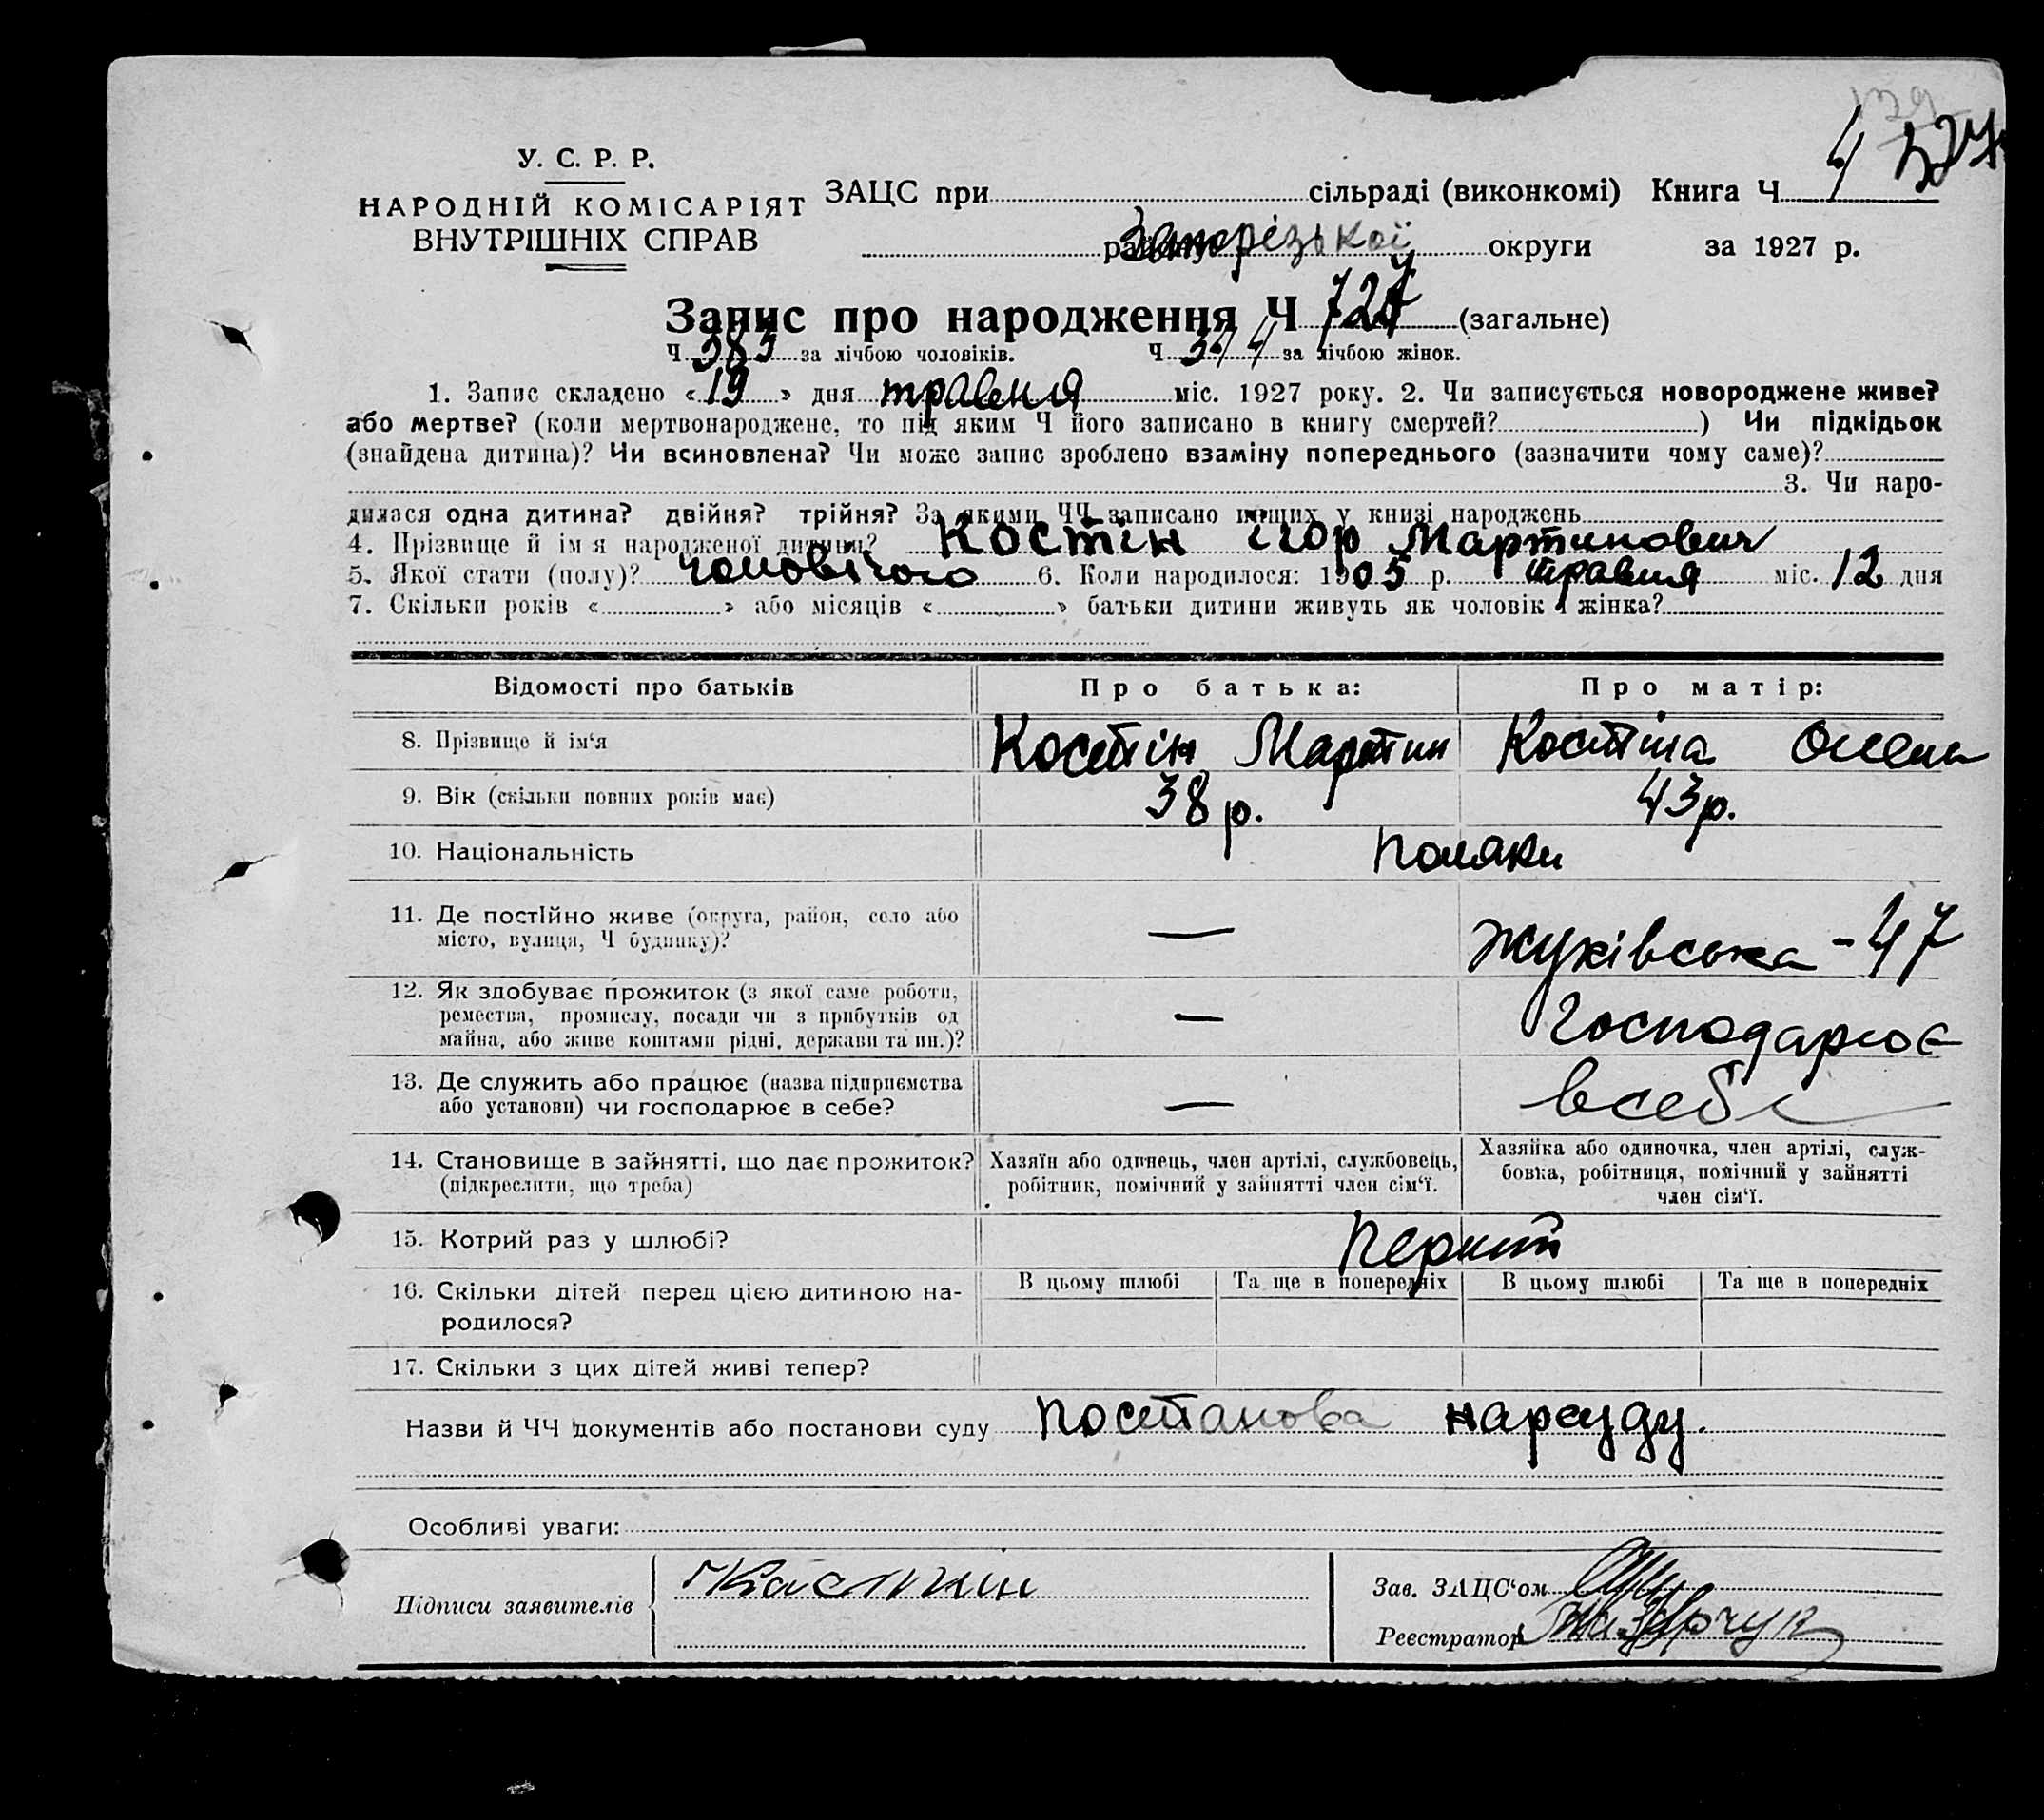 139
4 527
У. С. Р. Р.
НАРОДНІЙ КОМІСАРІЯТ
ВНУТРІШНІХ СПРАВ
ЗАЦС при сільраді (виконкомі) Книга Ч
Запорізької округи за 1927 р.
Запис про народження Ч 727 (загальне)
Ч 383 за лічбою чоловіків. Ч 344 за лічбою жінок.
1. Запис складено «19» дня травня міс. 1927 року. 2. Чи записується новороджене живе?
або мертве? (коли мертвонароджене, то під яким Ч його записано в книгу смертей? ) Чи підкідьок
(знайдена дитина)? Чи всиновлена? Чи може запис зроблено взаміну попереднього (зазначити чому саме)?
3. Чи наро-
дилася одна дитина? двійня? трійня? За якими ЧЧ записано инших у книзі народжень
4. Прізвище й ім я народженої дитини? Костін Ігор Мартинович
5. Якої стати (полу)? чоловічого 6. Коли народилося: 1905 р. травня міс. 12 дня
7. Скільки років « » або місяців « » батьки дитини живуть як чоловік і жінка?
Відомості про батьків Про батька: Про матір:
8. Прізвище й ім‘я Костін Мартин Костіна Олена
9. Вік (скільки повних років має) 38 р. 43 р.
10. Національність поляки
11. Де постійно живе (округа, район, село або
місто, вулиця, Ч будинку)? — Жуківська - 47
12. Як здобуває прожиток (з якої саме роботи,
ремества, промислу, посади чи з прибутків од
майна, або живе коштами рідні, держави та ин.)? — Господарює
13. Де служить або працює (назва підприємства
або установи) чи господарює в себе? — в себе
14. Становище в зайнятті, що дає прожиток?
(підкреслити, що треба)
Хазяїн або одинець, член артілі, службовець,
робітник, помічний у зайнятті член сім‘ї.
Хазяйка або одиночка, член артілі, служ-
бовка, робітниця, помічний у зайнятті
член сім‘ї.
15. Котрий раз у шлюбі? перший
16. Скільки дітей перед цією дитиною на-
родилося?
В цьому шлюбі Та ще в попередніх В цьому шлюбі Та ще в попередніх
17. Скільки з цих дітей живі тепер?
Назви й ЧЧ документів або постанови суду постанова нарсуду.
Особливі уваги:
Підписи заявителів Костин
Зав. ЗАЦС‘ом
Реєстратор